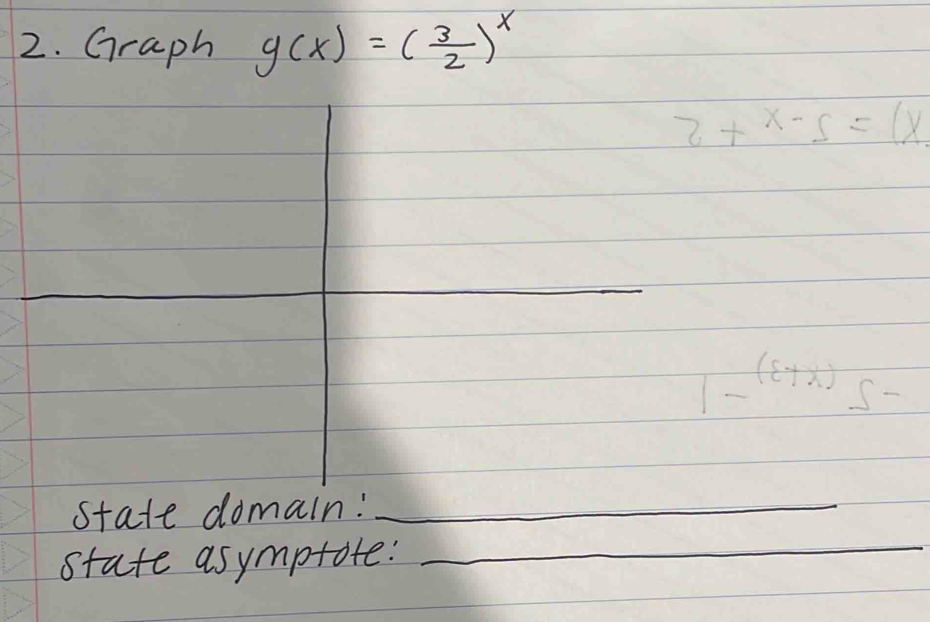 2. Graph g(x) = (3/2)^x
state domain:
state asymptote: